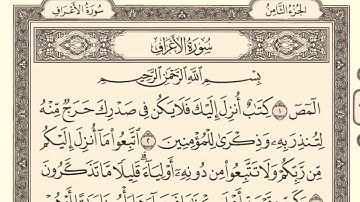 سُورَةُ الأَعْرَافِ الجُزْءُ الثَّامِنُ
سُورَةُ الأَعْرَافِ
بِسْمِ ٱللَّهِ ٱلرَّحْمَٰنِ ٱلرَّحِيمِ
الٓمٓصٓ ١ كِتَٰبٌ أُنزِلَ إِلَيْكَ فَلَا يَكُن فِى صَدْرِكَ حَرَجٌ مِّنْهُ
لِتُنذِرَ بِهِۦ وَذِكْرَىٰ لِلْمُؤْمِنِينَ ٢ ٱتَّبِعُوا۟ مَآ أُنزِلَ إِلَيْكُم
مِّن رَّبِّكُمْ وَلَا تَتَّبِعُوا۟ مِن دُونِهِۦٓ أَوْلِيَآءَ ۗ قَلِيلًا مَّا تَذَكَّرُونَ